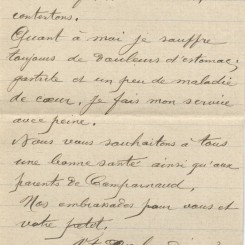 contestons.
Quant à moi je souffre
toujours de douleurs d'estomac,
gastrite et un peu de maladie
de cœur. Je fais mon service
avec peine.
Nous vous souhaitons à tous
une bonne santé ainsi qu'aux
parents de Camparnaud.
Nos embrassades pour vous et
votre petit.